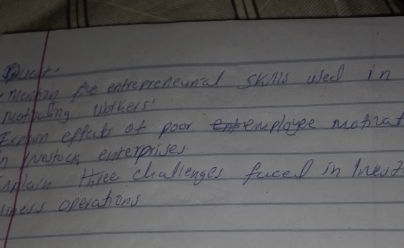 Mention five entrepreneurial skills used in
motivating workers
Explain effects of poor employee motivat
in livestock enterprises
Explain three challenges faced in livest
iness operations